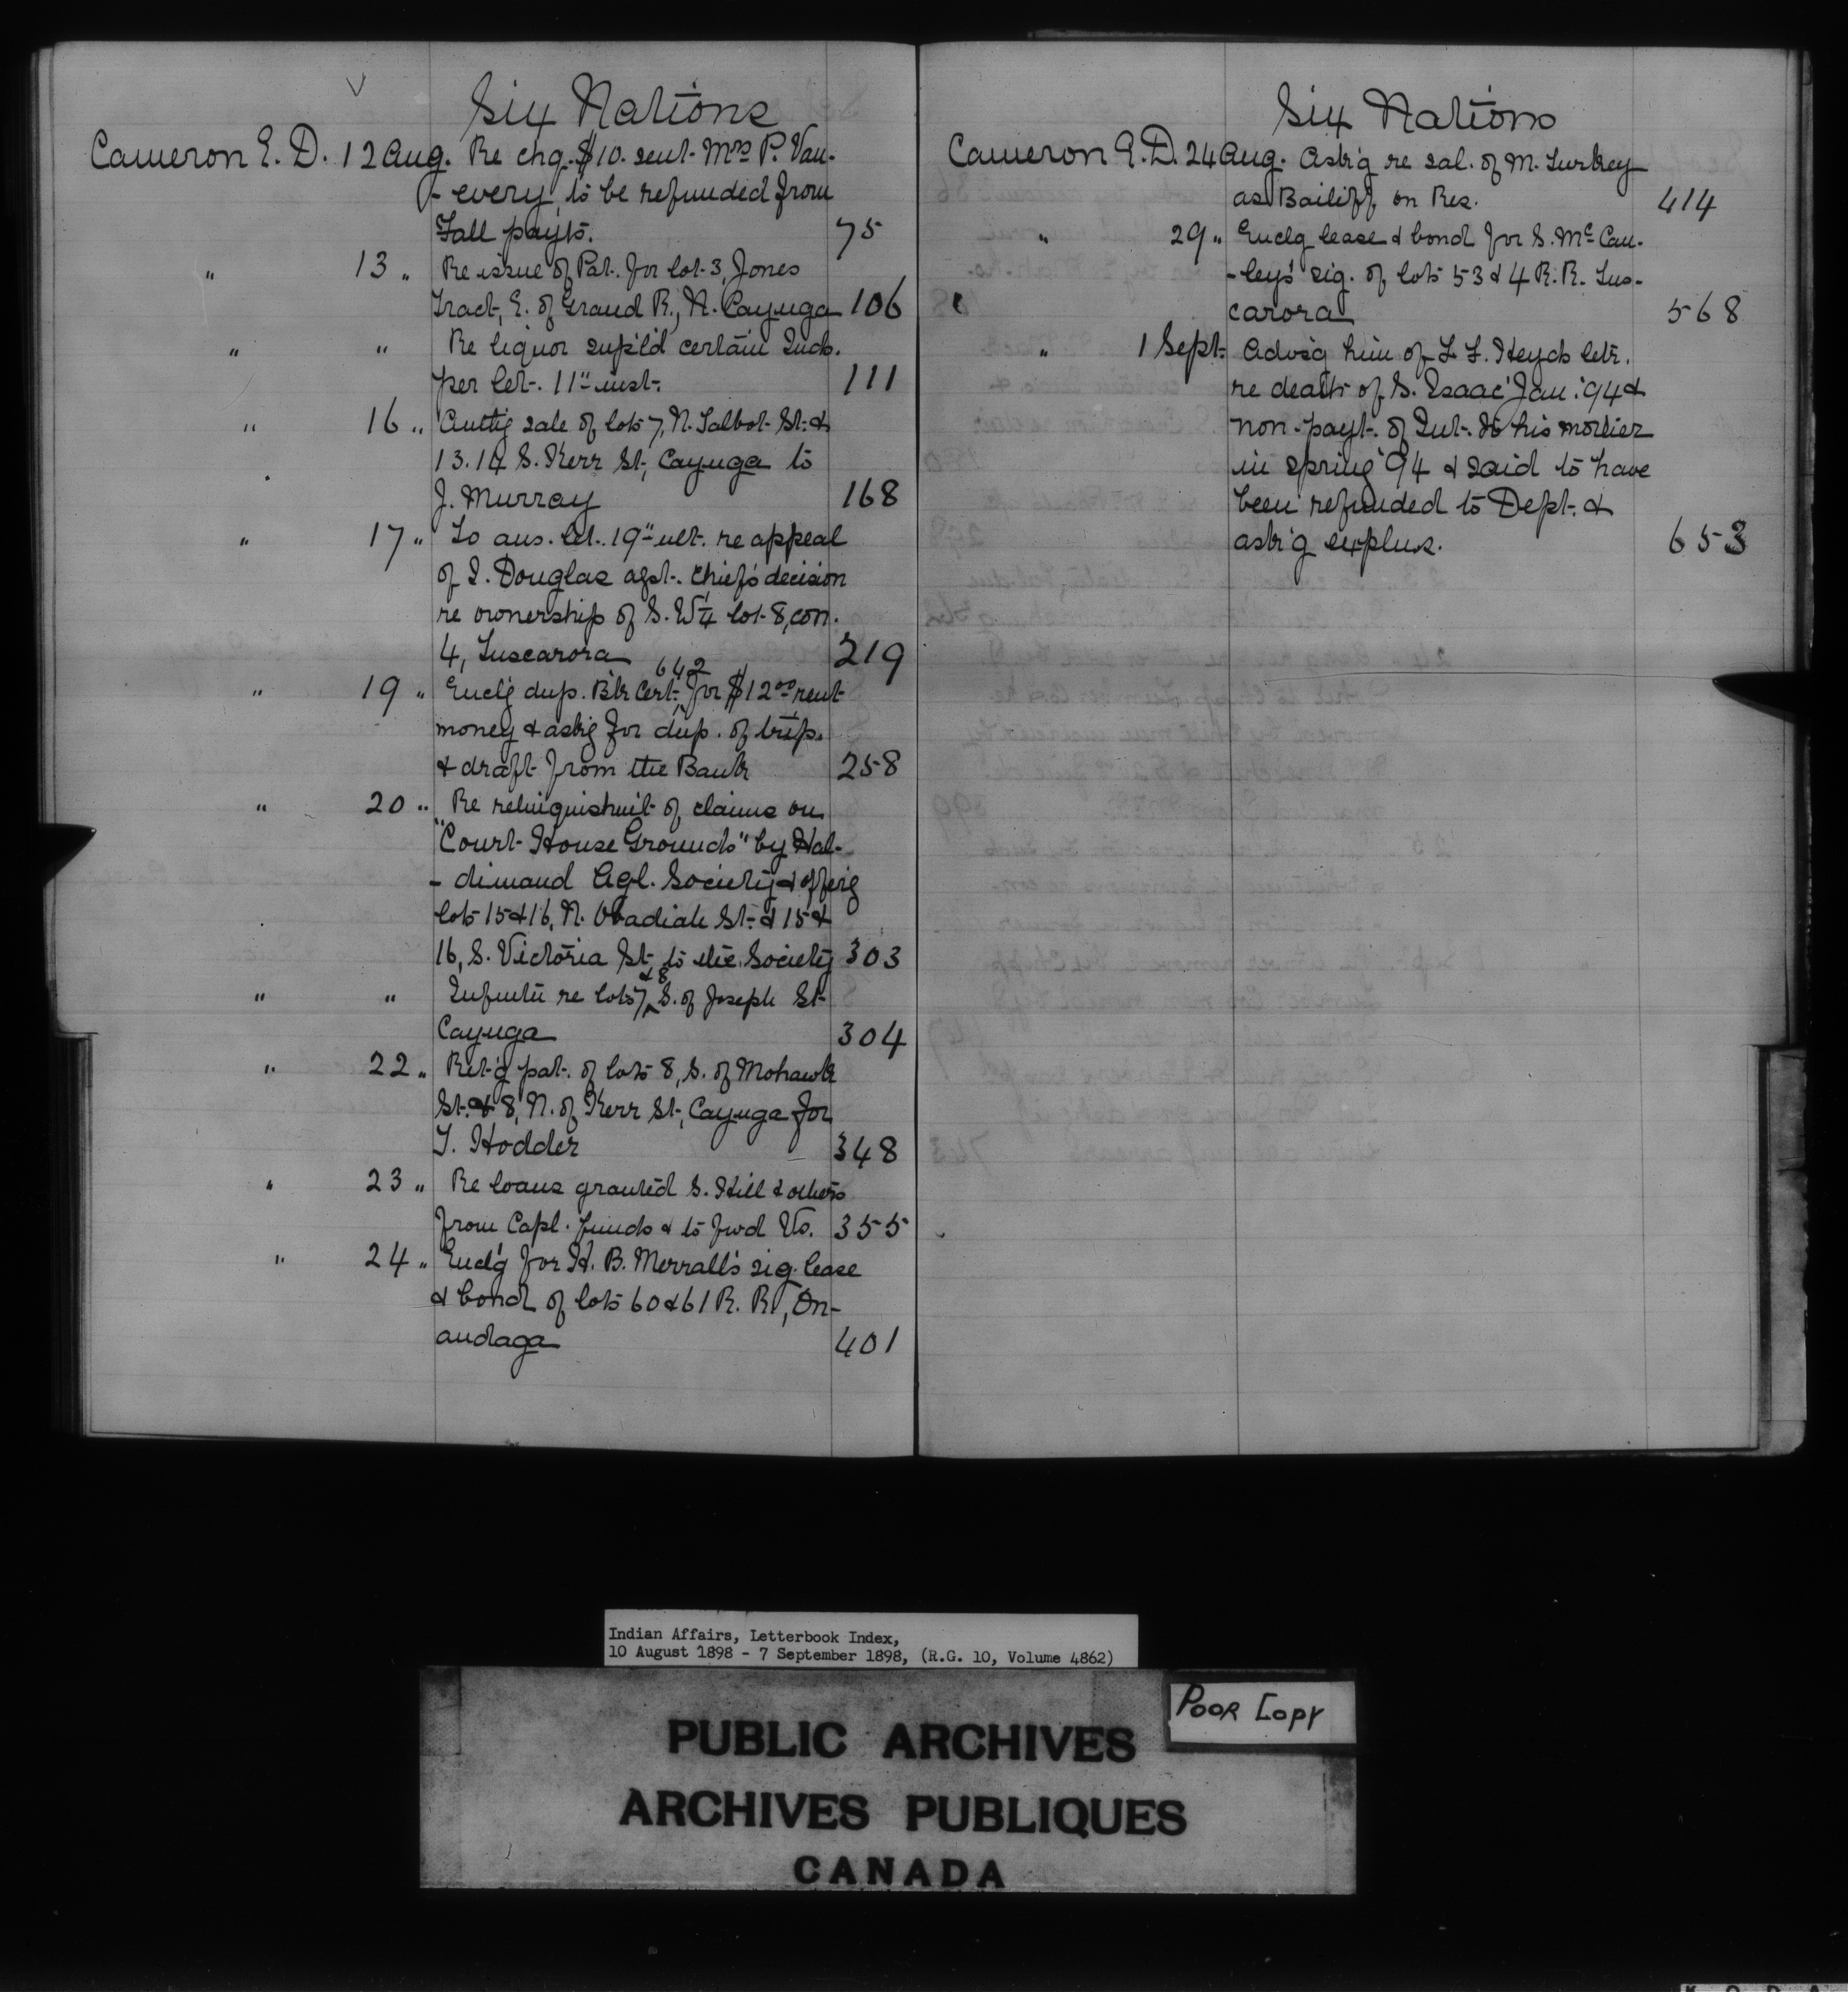 Six Nations
Cameron E. D. 12 Aug. Re chq. $10. sent Mrs P. Van-
-every, to be refunded from
Fall payts. 75
" 13 " Re issue of Pat. for lot 3, Jones
Tract, E. of Grand R., N. Cayuga 106
" " Re liquor sup'l'd certain Inds.
per let. 11" inst. 111
" 16 " Authg sale of lots 7, N. Talbot St. &
13.14 S. Kerr St., Cayuga to
J. Murray 168
" 17 " To ans. let. 19" ult. re appeal
of I. Douglas agst. Chief's decision
re ownership of S. W¼ lot 8, con.
4, Tuscarora 219
" 19 " Encl'g dup. B'k Cert. 642 for $12.00 rent
money & ask'g for dup. of trip.
& draft from the Bank 258
" 20 " Re relinquishm't of claims on
"Court House Grounds" by Hal-
-dimand Agl. Society & offerg
lots 15 & 16, N. Obadiah St. & 15 &
16, S. Victoria St. to the Society 303
" " Infmtn re lots 7 & 8 S. of Joseph St.
Cayuga 304
" 22 " Ret'g pat. of lots 8, S. of Mohawk
St. & 8, N. of Kerr St., Cayuga for
T. Hodder 348
" 23 " Re loans granted S. Hill & others
from Capl. funds & to fwd Vs. 355
" 24 " Encl'g for H. B. Merrall's sig. lease
& bond of lots 60 & 61 R. R., On-
andaga 401
Six Nations
Cameron E. D. 24 Aug. Ask'g re sal. of M. Turkey
as Bailiff on Res. 414
" 29 " Enclg lease & bond for S. Mc Cau-
-ley's sig. of lots 53 & 4 R. R. Tus-
carora 568
" 1 Sept. Advs'g him of L. F. Heyd's letr.
re death of S. Isaac Jan. '94 &
non-payt. of Int. to his mother
in spring '94 & said to have
been refunded to Dept. &
ask'g explns. 653
Indian Affairs, Letterbook Index,
10 August 1898 - 7 September 1898, (R.G. 10, Volume 4862)
POOR COPY
PUBLIC ARCHIVES
ARCHIVES PUBLIQUES
CANADA